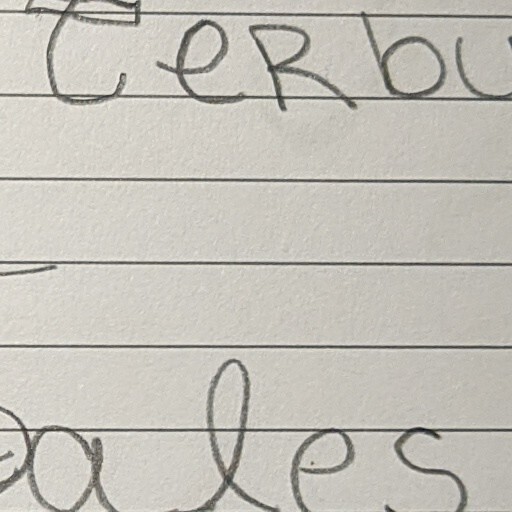 terbu
ales